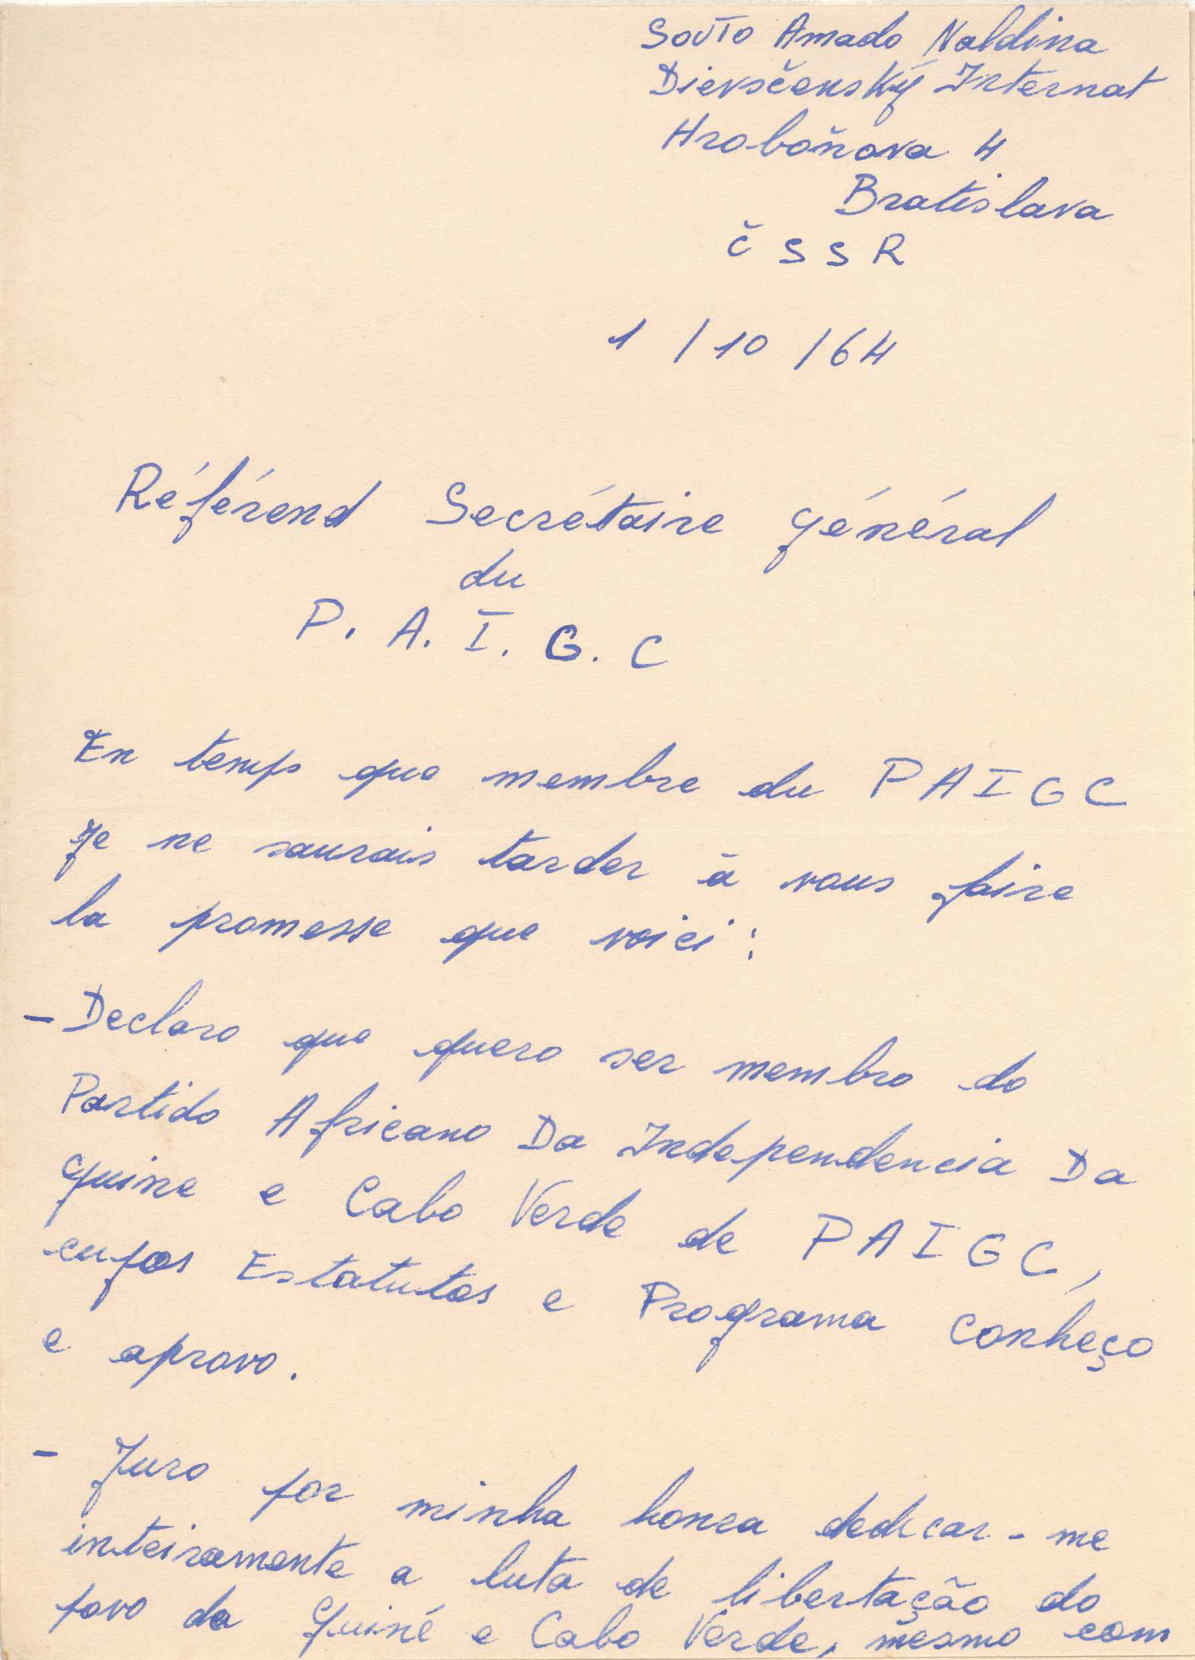 Souto Amado Naldina
Dievsčenský Internat
Hroboňova 4
Bratislava
ČSSR
1/10/64
Référend Secrétaire Général
du
P.A.I.G.C
En temps que membre du PAIGC
Je ne saurais tarder à vous faire
la promesse que voici:
- Declaro que quero ser membro do
Partido Africano Da Independencia Da
Guine e Cabo Verde de PAIGC,
cujos Estatutos e Programa conheço
e aprovo.
- Juro por minha honra dedicar-me
inteiramente a luta de libertação do
povo da Guiné e Cabo Verde, mesmo com